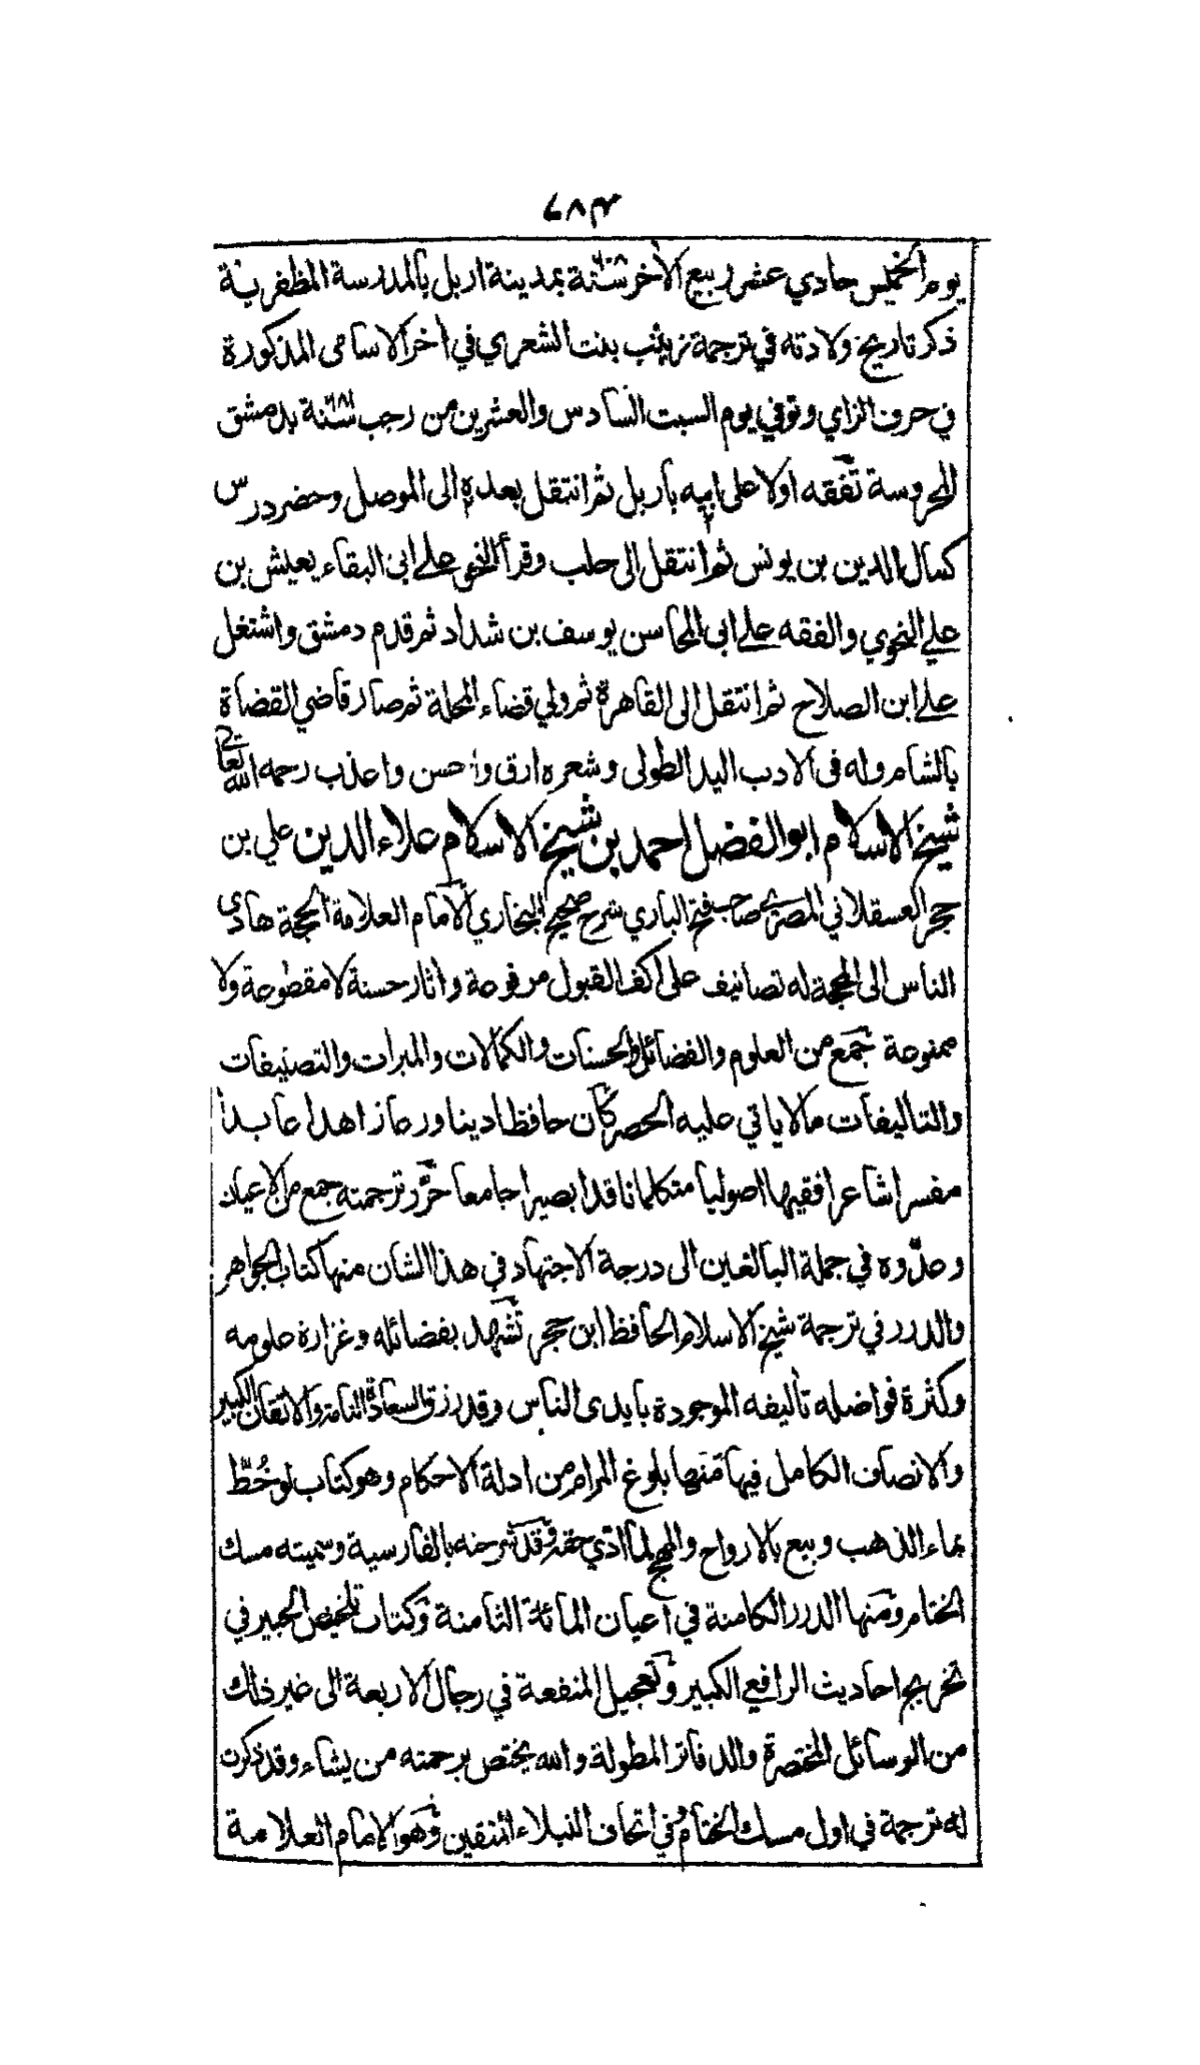 ٦٨٣
يوم الخميس حادي عشر ربيع الاخر سنة ٦٠٨ بمدينة اربل بالمدرسة المظفرية
ذكر تاريخ ولادته في ترجمة زينب بنت الشعري في اخر الاسامى المذكورة
في حرف الزاي وتوفي يوم السبت السادس والعشرين من رجب سنة ٦٨١ بدمشق
المحروسة تفقه اولا على ابيه باربل ثم انتقل بعده الى الموصل وحضر درس
كمال الدين بن يونس ثم انتقل الى حلب وقرأ النحو على ابى البقاء يعيش بن
علي النحوي والفقه على ابى المحاسن يوسف بن شداد ثم قدم دمشق واشتغل
على ابن الصلاح ثم انتقل الى القاهرة ثم ولي قضاء المحلة ثم صار قاضي القضاة
بالشام وله فى الادب اليد الطولى وشعره ارق واحسن واعذب رحمه الله تعالى
شيخ الاسلام ابو الفضل احمد بن شيخ الاسلام علاء الدين علي بن
حجر العسقلاني المصري صاحب فتح الباري شرح صحيح البخاري الامام العلامة الحجة هادى
الناس الى المحجة له تصانيف على اكف القبول مرفوعة واثار حسنة لا مقطوعة ولا
ممنوعة جمع من العلوم والفضائل والحسنات والكمالات والمبرات والتصنيفات
والتاليفات ما لا ياتي عليه الحصر كان حافظا دينا ورعا زاهدا عابدا
مفسرا شاعرا فقيها اصوليا متكلما ناقدا بصيرا جامعا حرّر ترجمته جمع من الاعيان
وعدّوه في جملة البالغين الى درجة الاجتهاد في هذا الشان منها كتاب الجواهر
والدرر في ترجمة شيخ الاسلام الحافظ ابن حجر تشهد بفضائله وغزارة علومه
وكثرة فواضله تأليفه الموجودة بايدى الناس وقد رزق السعادة التامة والاتقان الكبير
والانصاف الكامل فيها منها بلوغ المرام من ادلة الاحكام وهو كتاب لو خُطّ
بماء الذهب وبيع بالارواح والمهج لما ادي حقه وقد شرحته بالفارسية وسميته مسك
الختام ومنها الدرر الكامنة في اعيان المائة الثامنة وكتاب تلخيص الحبير في
تخريج احاديث الرافعي الكبير وتعجيل المنفعة في رجال الاربعة الى غير ذلك
من الوسائل المختصرة والدفاتر المطولة والله يختص برحمته من يشاء وقد ذكرت
له ترجمة في اول مسك الختام وفي اتحاف النبلاء المتقين وهو الامام العلامة